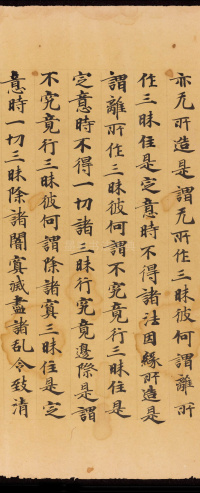 亦无所造是謂无所作三昧彼何謂離所
作三昧住是定意時不得諸法因緣所造是
謂離所作三昧彼何謂不究竟行三昧住是
定意時不得一切諸三昧行究竟邊際是謂
不究竟行三昧彼何謂除諸冥三昧住是定
意時一切三昧除諸闇冥滅盡諸乱令致清